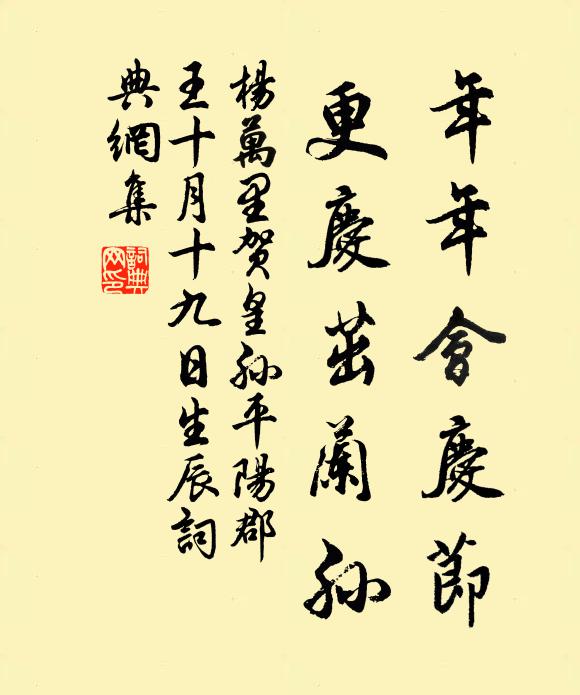 年年會慶節
更慶茁蘭孫
楊萬里賀皇孫平陽郡
王十月十九日生辰詞
典網集
詞典網印